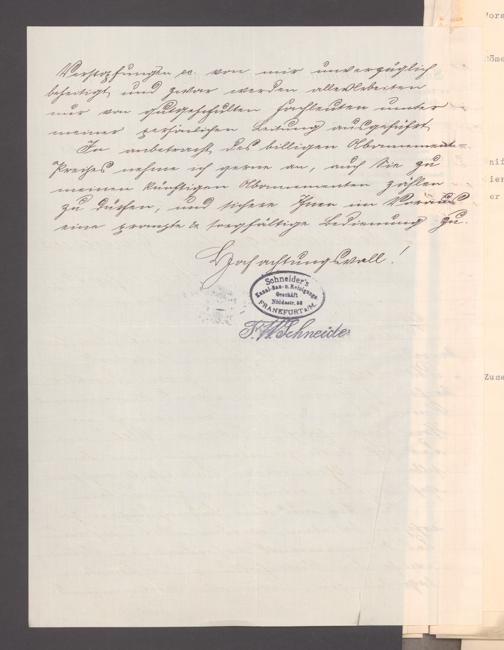 Verstopfungen etc. von mir unverzüglich
beseitigt und zwar werden alle Arbeiten
nur von gutgeschulten Fachleuten unter
meiner persönlichen Leitung ausgeführt.
In anbetracht des billigen Abonnement-
Preises nehme ich gerne an, auch Sie zu
meinen künftigen Abonnementen zählen
zu dürfen, und sichere Ihnen im Voraus
eine prompte & sorgfältige Bedienung zu.
Hochachtungsvoll!
Schneider's
Kanal-Bau- u. Reinigungs
Geschäft
FRANKFURT a/M.
F. W. Schneider